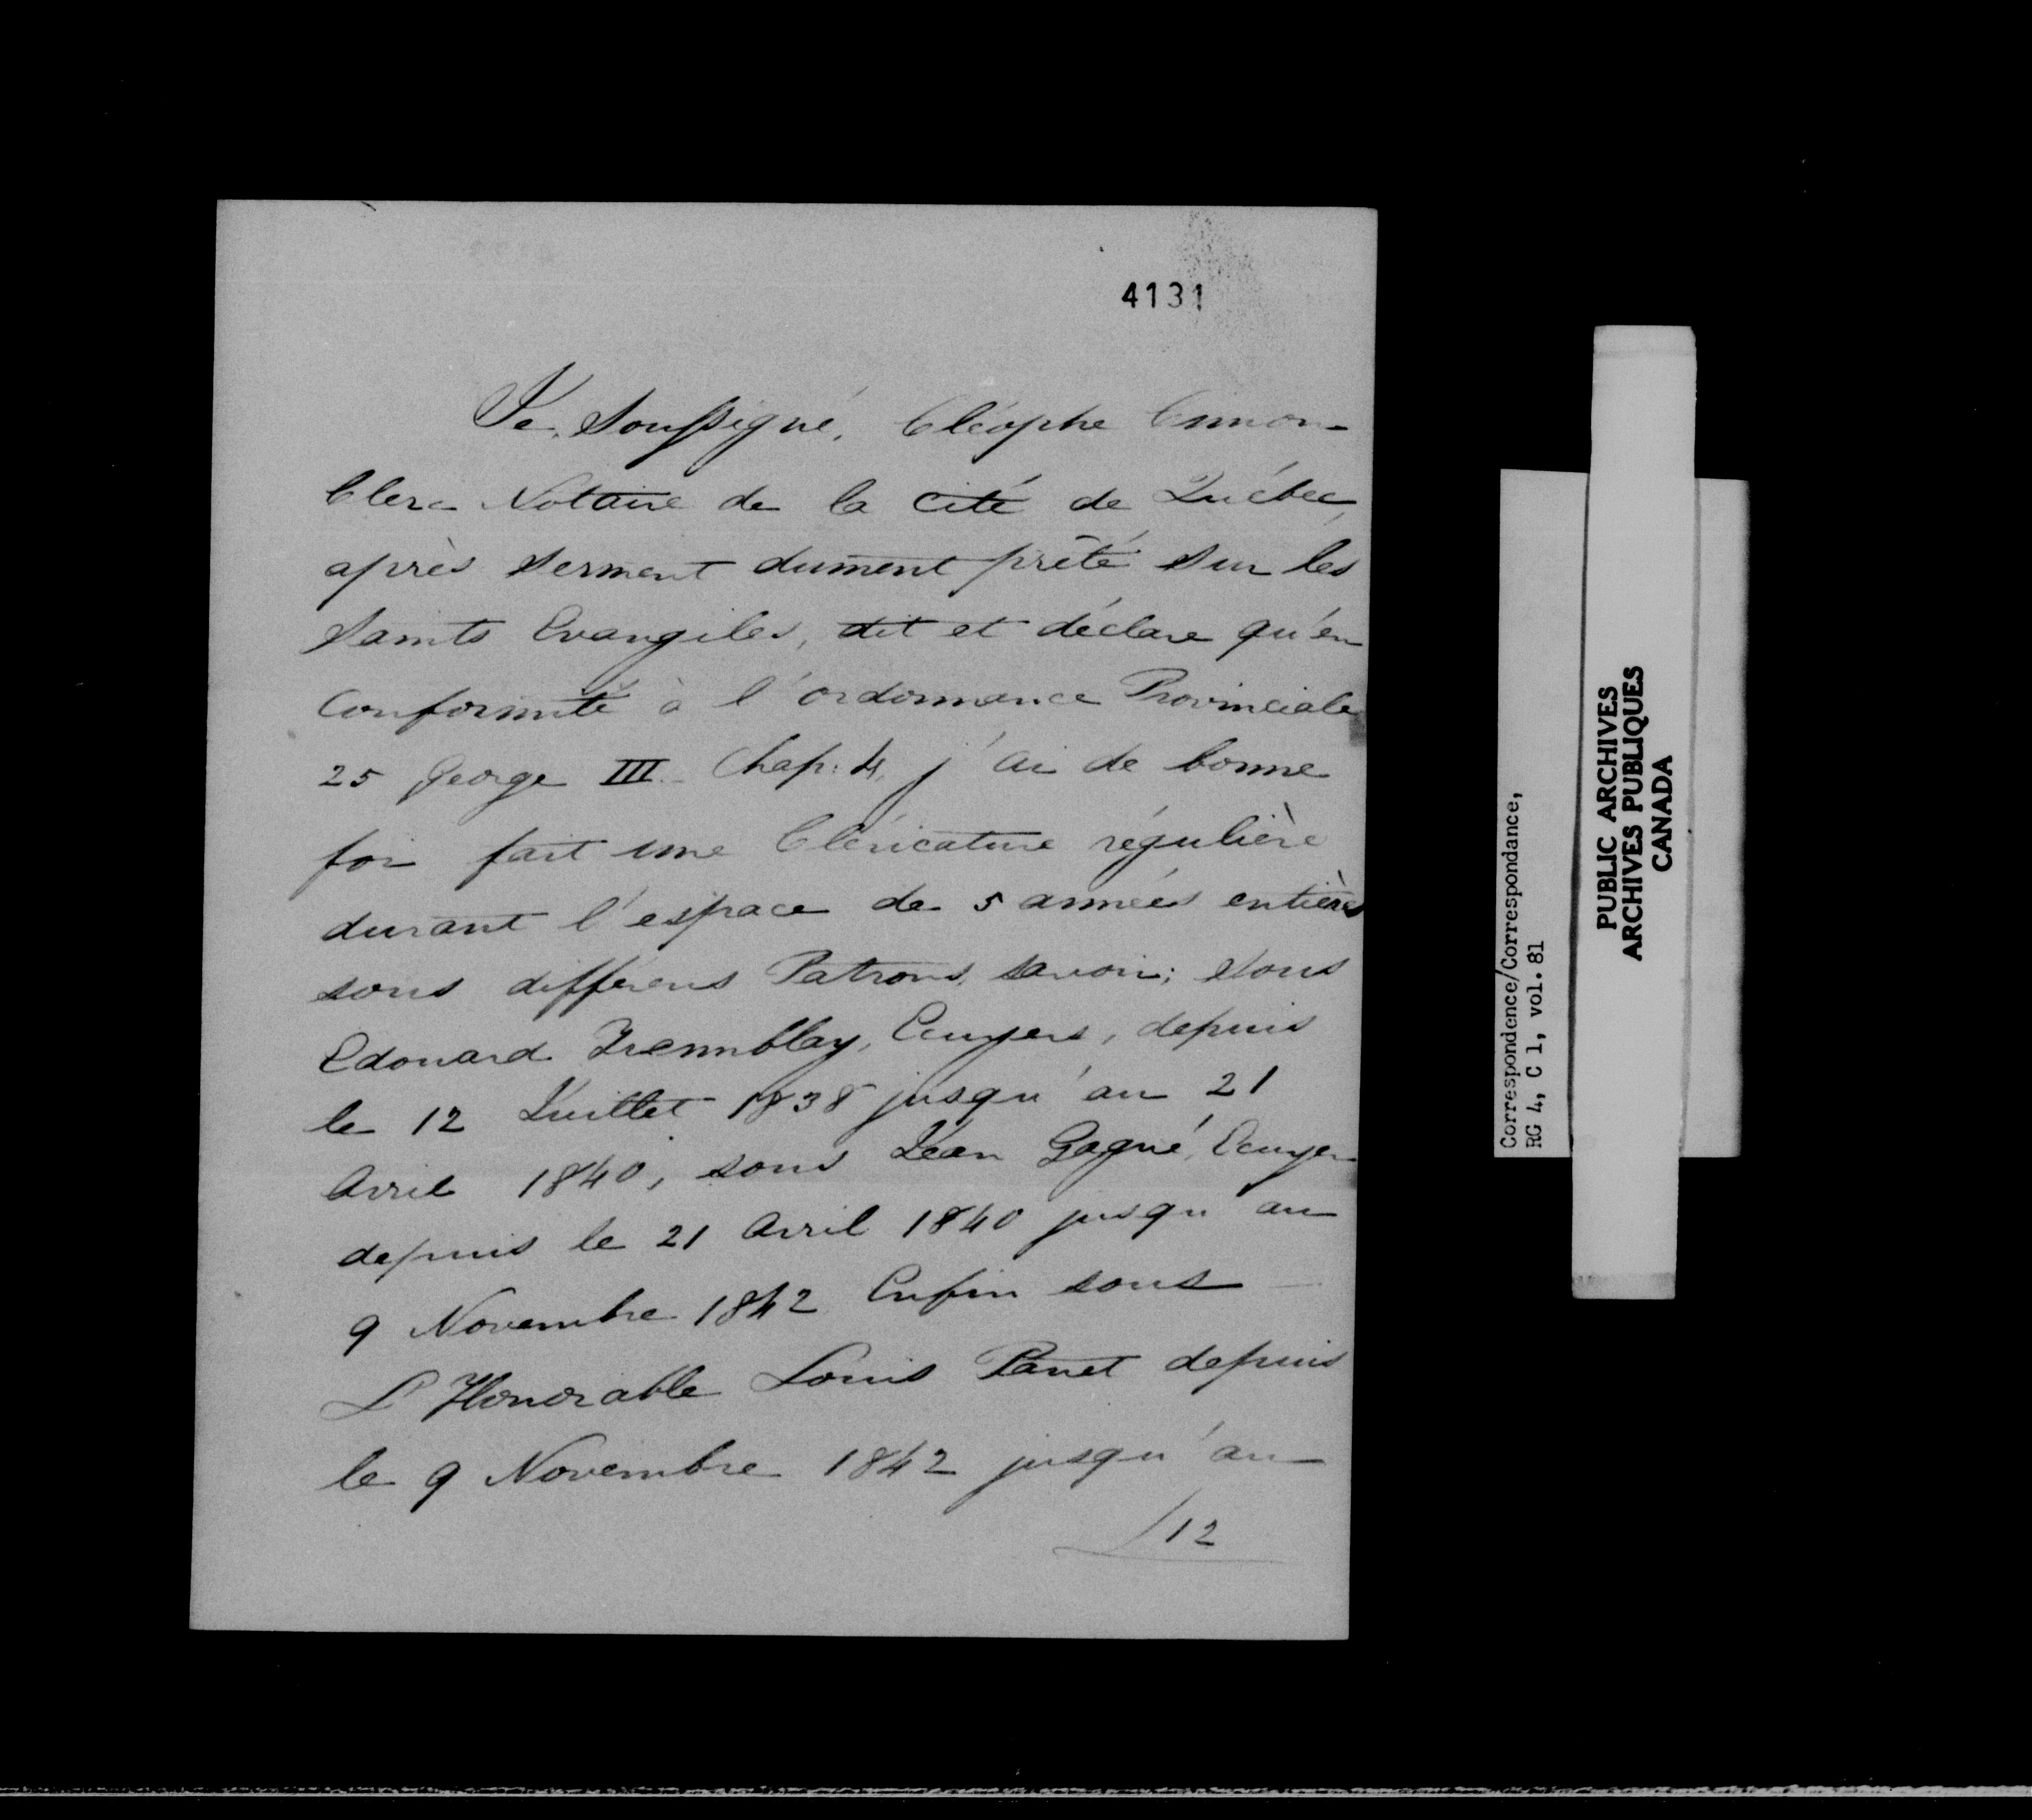 4131
Je, Soussigné, Cléophe Cimon
Clerc Notaire de la cité de Québec,
après serment dument prêté sur les
Saints Evangiles, dit et déclare qu'en
Conformité à l'ordonnance Provinciale
25 George III. Chap: 4, j'ai de bonne
foi fait une Cléricature régulière
durant l'espace de 5 années entières
sous différens Patrons, savoir; sous
Edouard Tremblay, Ecuyers, depuis
le 12 Juillet 1838 jusqu'au 21
Avril 1840, sous Jean Gagné, Ecuyer
depuis le 21 Avril 1840 jusqu'au
9 Novembre 1842 Enfin sous
L'Honorable Louis Panet depuis
le 9 Novembre 1842 jusqu'au
12
Correspondence/Correspondance,
RG 4, C 1, vol. 81
PUBLIC ARCHIVES
ARCHIVES PUBLIQUES
CANADA